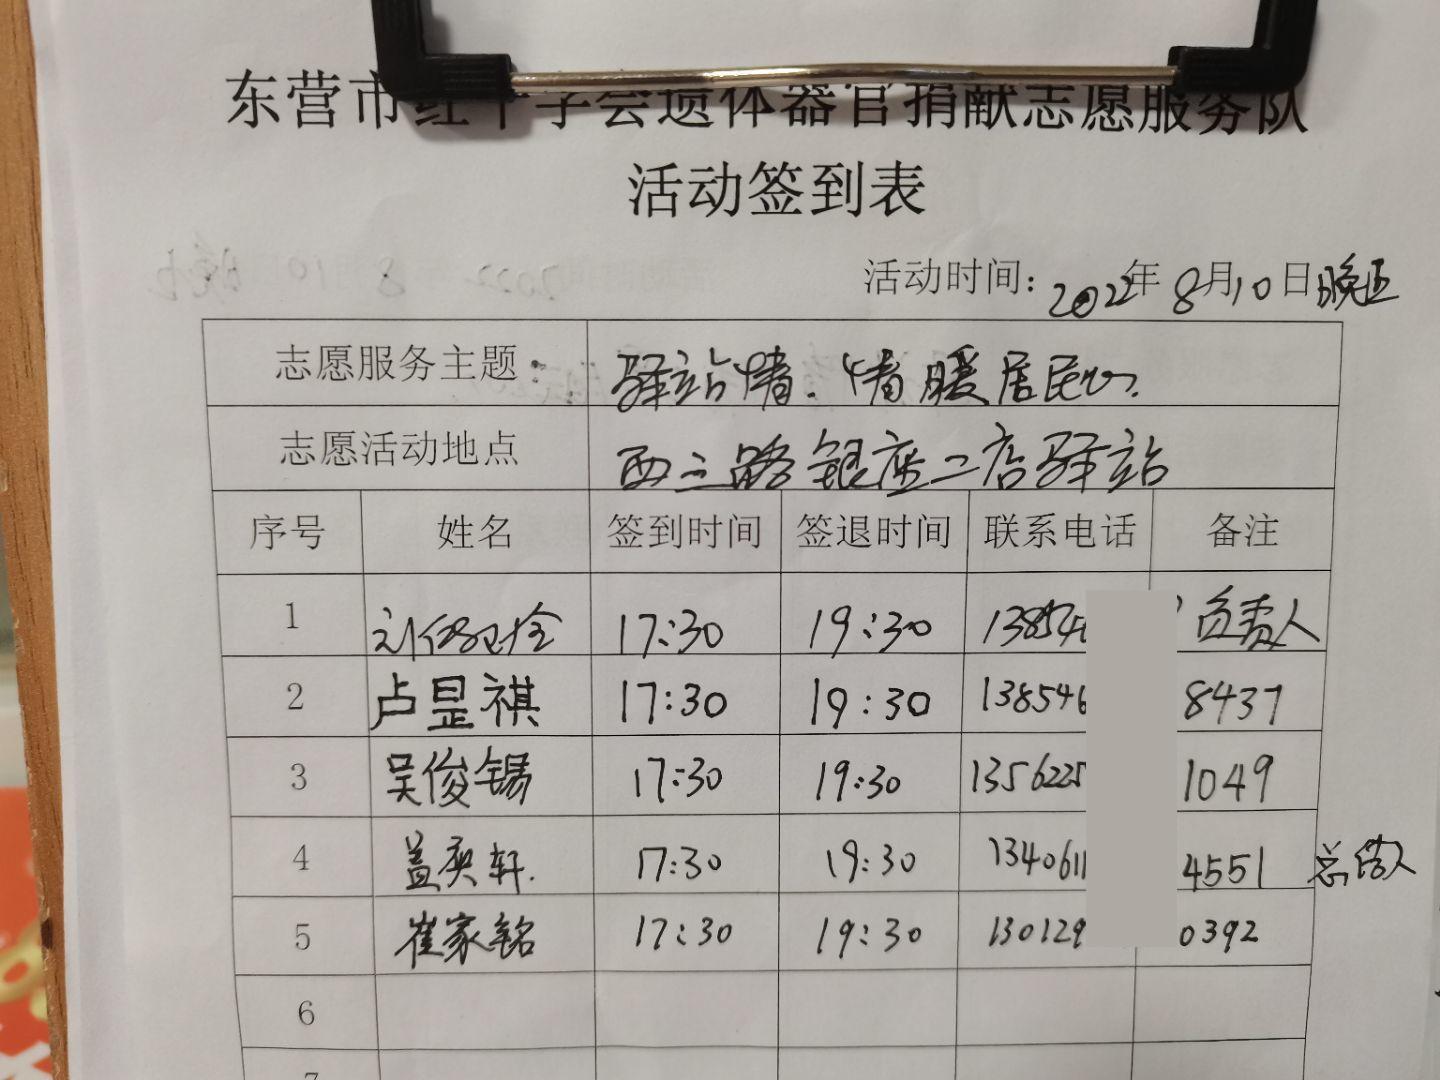 东营市红十字会遗体器官捐献志愿服务队
活动签到表
活动时间：2022年8月10日晚上
志愿服务主题： 驿站情.情暖居民心.
志愿活动地点 西三路银座二店驿站
序号 姓名 签到时间 签退时间 联系电话 备注
1 17:30 19:30 13854 负责人
2 卢昱祺 17:30 19:30 138546 8437
3 吴俊锡 17:30 19:30 1356225 1049
4 盖奕轩. 17:30 19:30 1340611 4551 总结人
5 崔家铭 17:30 19:30 130129 0392
6